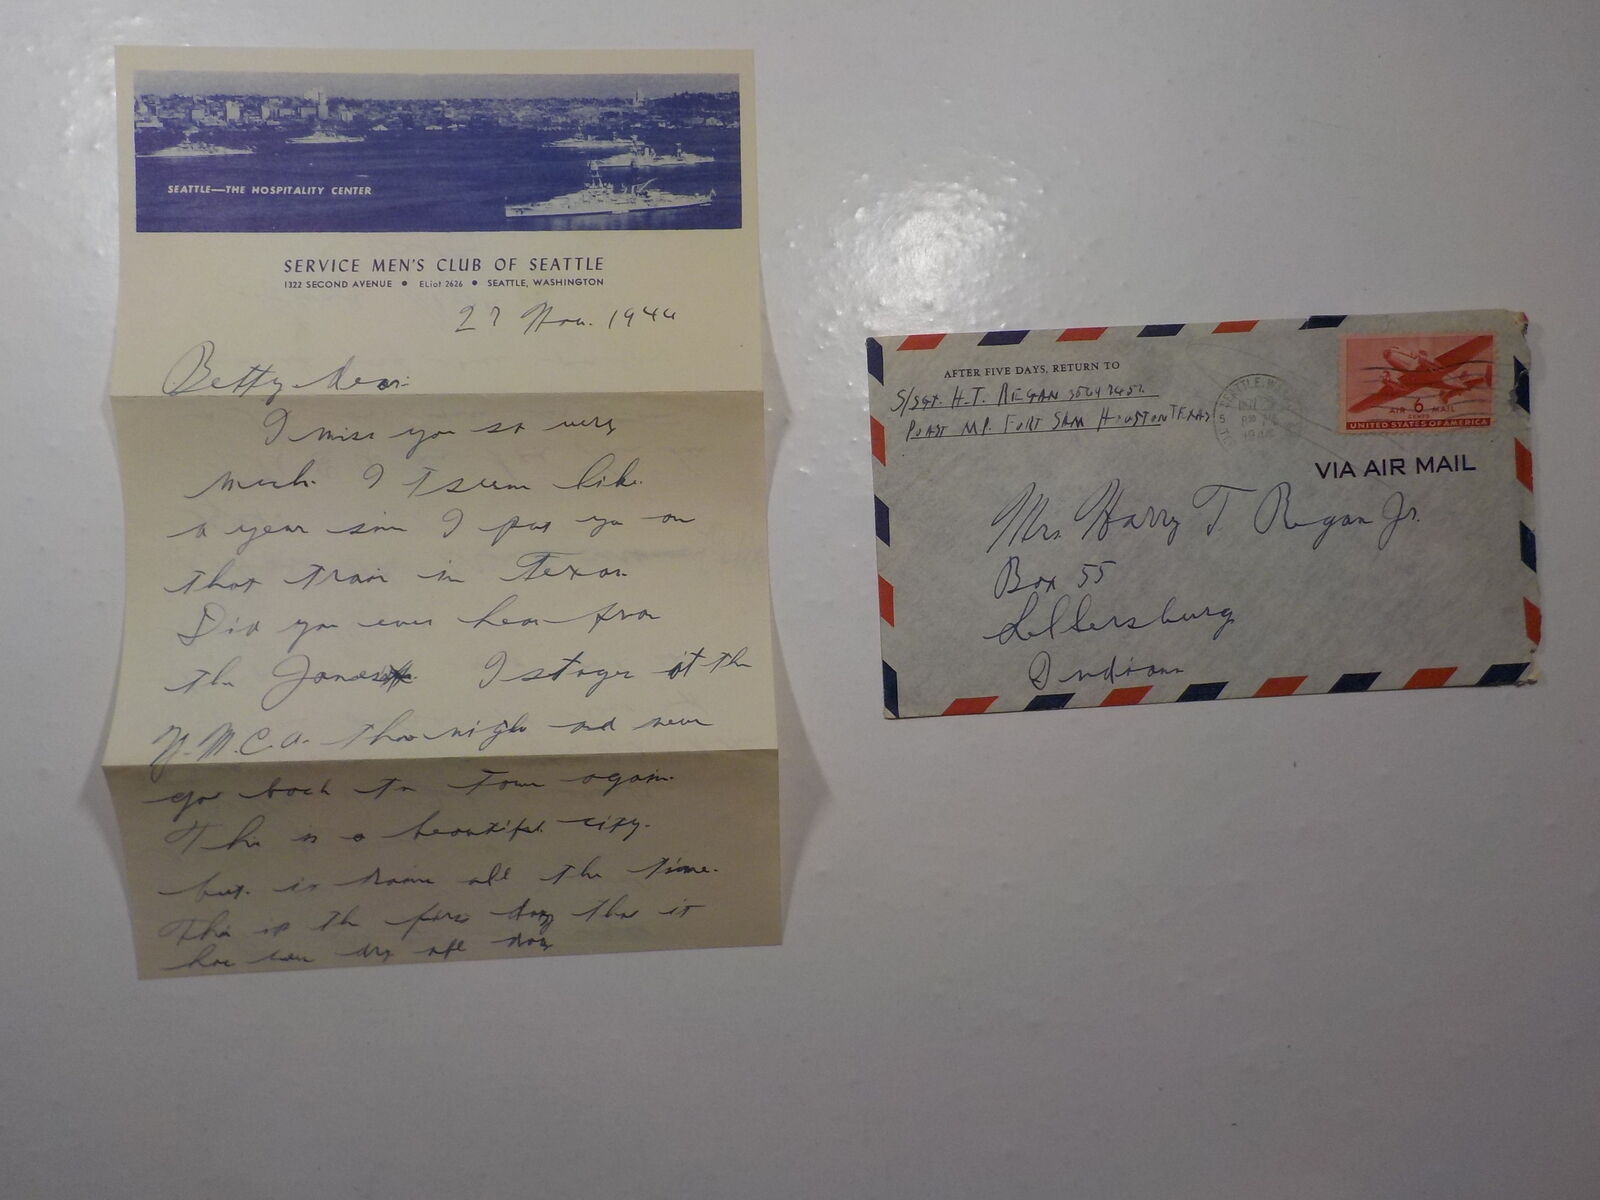 SEATTLE—THE HOSPITALITY CENTER
SERVICE MEN'S CLUB OF SEATTLE
1322 SECOND AVENUE • ELiot 2626 • SEATTLE, WASHINGTON
27 Nov. 1944
Betty dear:
I miss you so very
much. I seem like
a year since I put you on
that train in Texas.
Did you ever hear from
the I stayed at the
Y.M.C.A. last night and never
go back to town again.
This is a beautiful city.
but is rains all the time.
This is the first day that it
has been dry all day
AFTER FIVE DAYS, RETURN TO
S/SGT. H.T. REGAN
M.P. FORT SAM HOUSTON TEXAS
SEATTLE, WASH.
AIR 6 MAIL
CENTS
UNITED STATES OF AMERICA
VIA AIR MAIL
Mrs Harry T Regan Jr.
Box 55
Sellersburg
Indiana